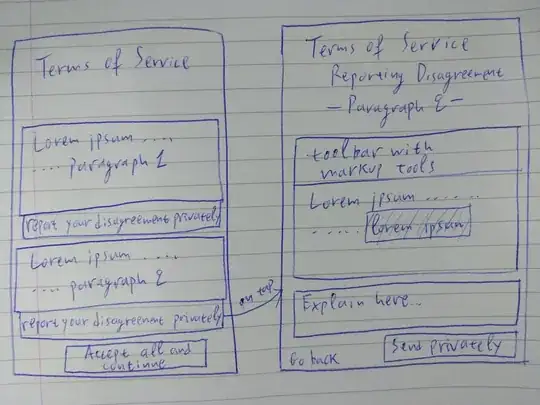 Terms of Service
Lorem ipsum ....
.... paragraph 1
report your disagreement privately
Lorem ipsum ....
.... paragraph 2
report your disagreement privately
Accept all and
continue
on tap
Terms of Service
Reporting Disagreement
— Paragraph 2 —
toolbar with
markup tools
Lorem ipsum .......
..... lorem ipsum
Explain here...
Go back
Send privately